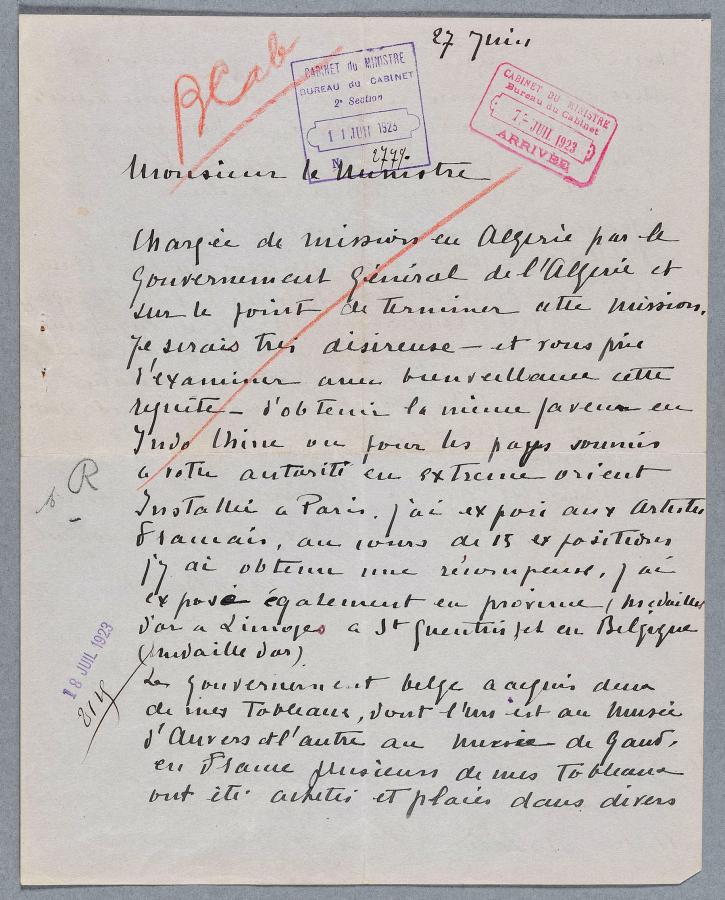 27 Juin
BCab
CABINET du MINISTRE
BUREAU du CABINET
2e Section
11 JUIL 1923
N
CABINET DU MINISTRE
Bureau du Cabinet
7 - JUIL 1923
ARRIVÉE
Monsieur le Ministre
Chargée de mission en Algérie par le
Gouvernement Général de l'Algérie et
sur le point de terminer cette mission,
je serais très désireuse — et vous prie
d'examiner avec bienveillance cette
requête — d'obtenir la même faveur en
Indo Chine ou pour les pays soumis
a votre autorité en extreme orient
Installée a Paris, j'ai exposé aux Artistes
Français, au cours de 15 expositions
j'y ai obtenu une récompense, j'ai
exposé également en province (médailles
d'or a Limoges a St Quentin) et en Belgique
(médaille d'or)
Le Gouvernement belge a acquis deux
de mes Tableaux, dont l'un est au Musée
d'Anvers et l'autre au musée de Gand,
en France plusieurs de mes Tableaux
ont été achetés et placés dans divers
R
18 JUIL 1923